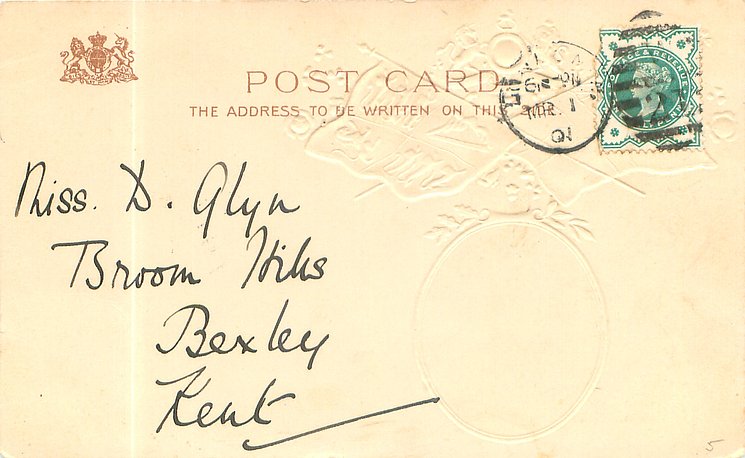 POST CARD
THE ADDRESS TO BE WRITTEN ON THIS
MR 1
01
Miss. D. Glyn
Broom Hills
Bexley
Kent
5